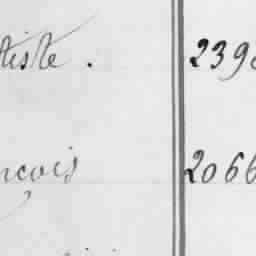 tiste. 239
nçois 2066